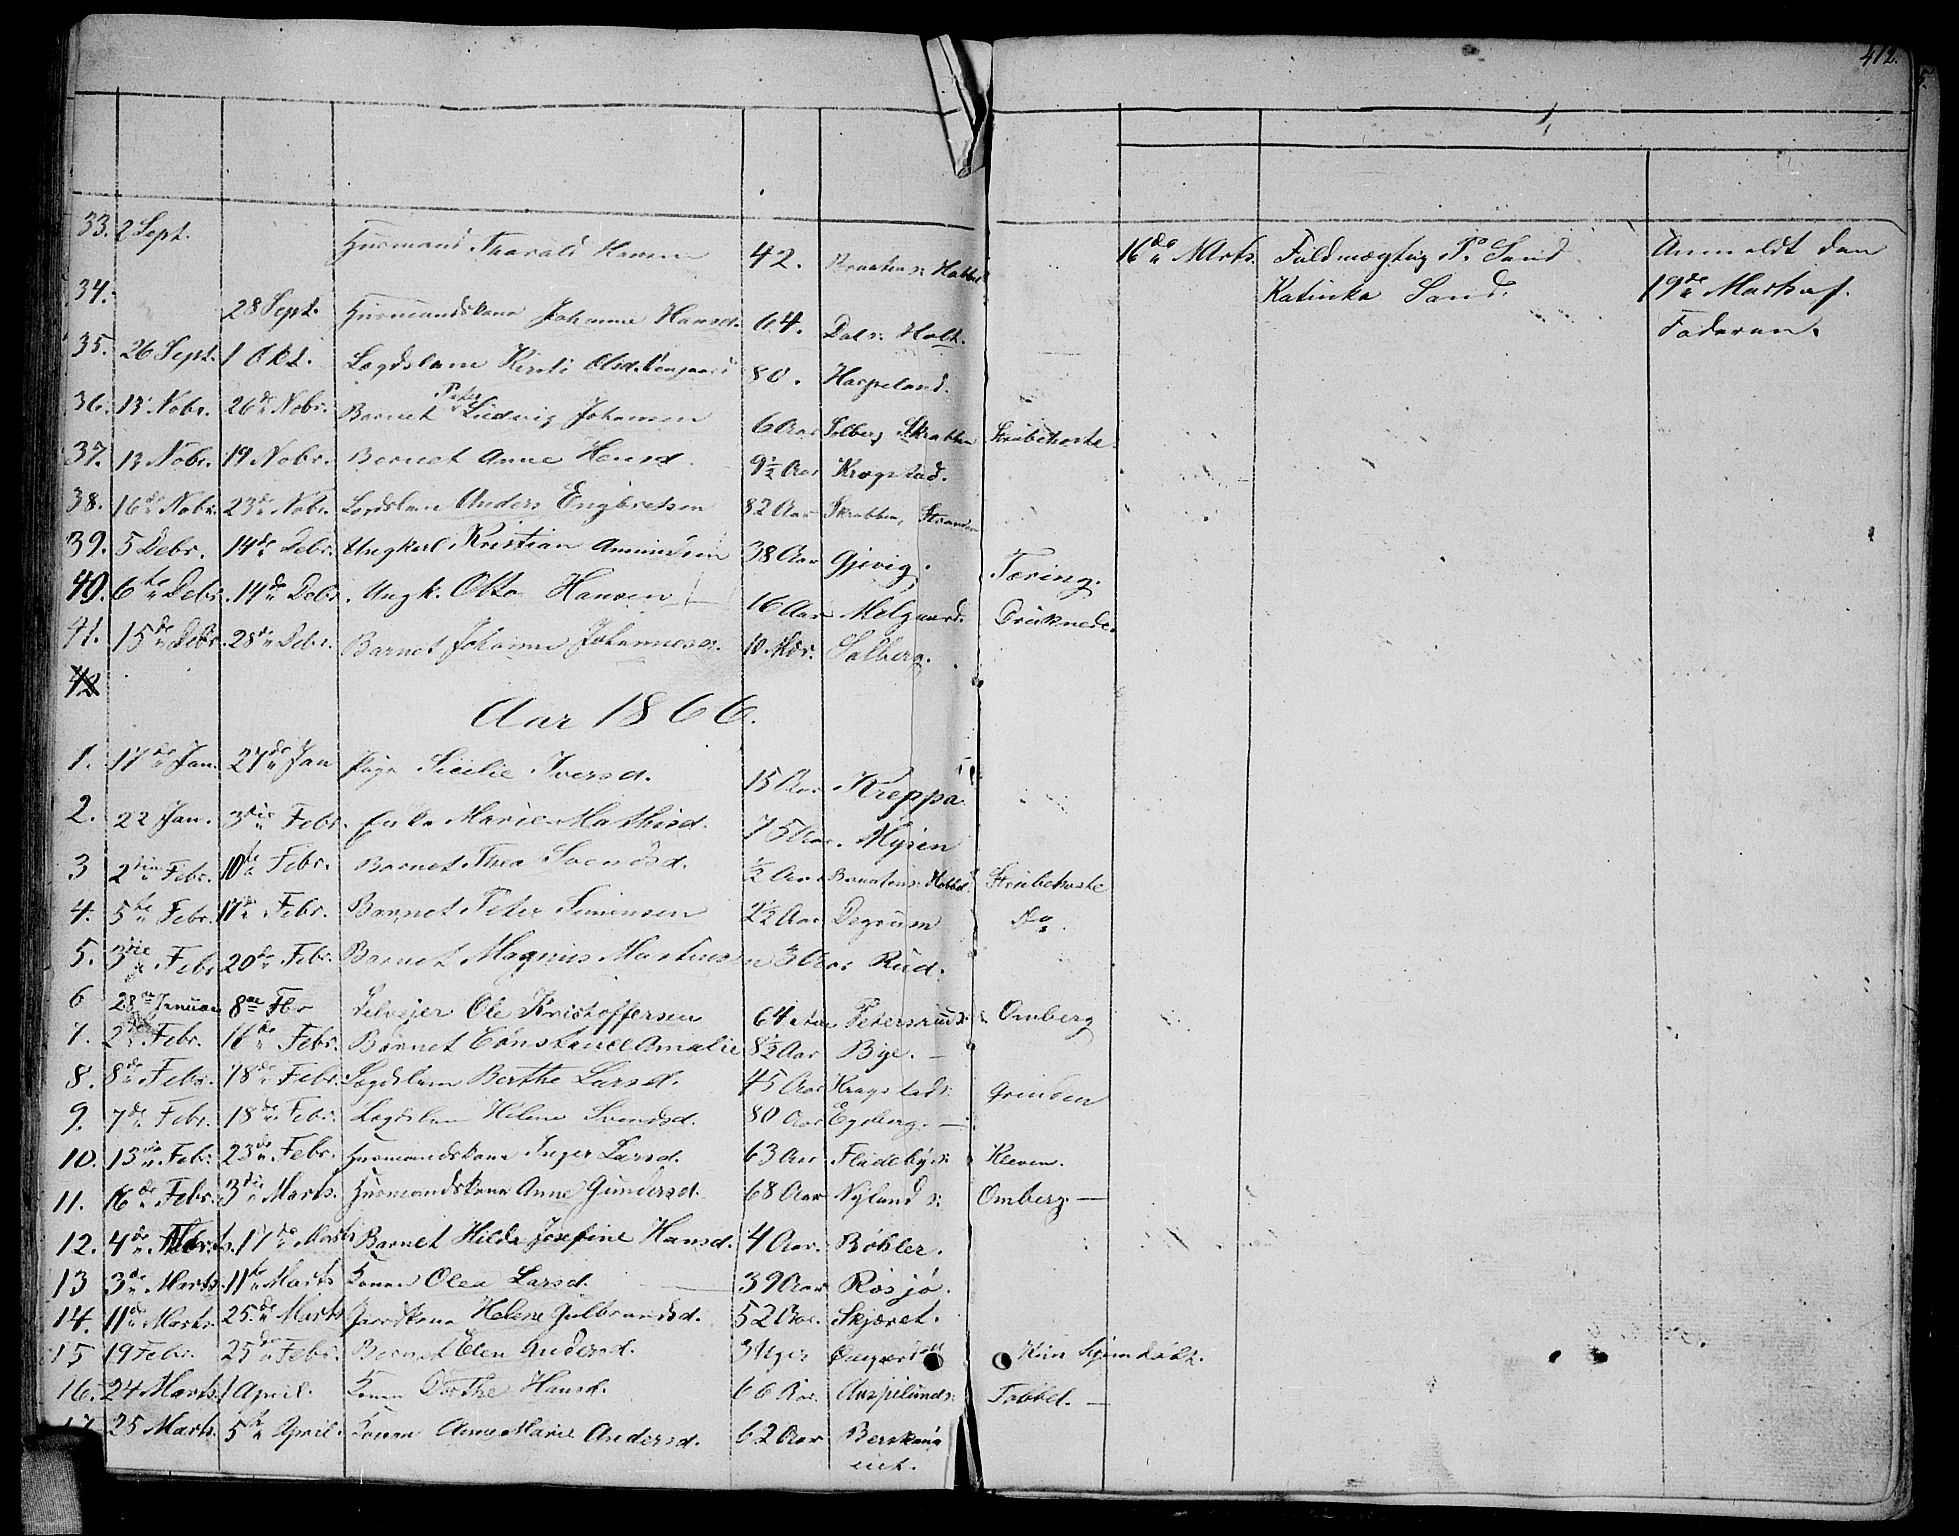 412.
33. 2 Sept. Husmand Tharald Hansen 42. Braaten s: Habbel
16de Marts. Fuldmægtig P. Sand Anmeldt den
Katinka Sand. 19de Marts af
Faderen.
34. 28 Sept. Husmandskone Johanne Hansd. 64. Dals: Holt.
35. 26 Sept. 1 Okt. Lægdslem Kirsti Olsd. 80. Haspeland.
36. 13 Nobr. 26de Nobr. Barnet Peter Ludvig Johansen 6 Aar Solberg Skrabben Strubehoste
37. 13 Nobr. 19 Nobr. Barnet Anne Hansd. 9½ Aar Krogstad.
38. 16de Nobr. 23de Nobr. Lægdslem Anders Engbretsen 82 Aar Skrabben, Stranden
39. 5 Debr. 14de Debr. Ungkarl Kristian Amundsen 38 Aar Gjevig. Tæring.
40. 6te Debr. 14de Debr. Ungk. Otto Hansen 16 Aar Melgaard. Druknede.
41. 15de Debr. 28de Debr. Barnet Johanne Johannesd. 10 Mdr. Solberg.
42
Aar 1866.
1. 17de Jan. 27de Jan Pige Sicilie Iversd. 15 Aar Kreppa
2. 22 Jan. 3die Febr. Enke Marie Mathisd. 75 Aar. Myren
3 2den Febr. 10de Febr. Barnet Thea Svendsd. ½ Aar Braaten s: Habbel Strubehoste
4. 5te Febr. 17de Febr. Barnet Peter Simensen 2½ Aar Degrum Do.
5. 3die Febr 20de Febr. Barnet Magnus Martinsen 3 Aar Rud.
6 28de Januar 8de Fbr Selvejer Ole Kristoffersen 64 Aar Petersrud s: Omberg
7. 2den Febr. 16de Febr. Barnet Constance Amalie 8½ Aar Bye.
8. 8de Febr. 18de Febr. Lægdslem Berthe Larsd. 45 Aar Kragstad s: Grenden
9. 7de Febr. 18de Febr. Lægdslem Helene Svendsd. 80 Aar Egeberg.
10. 13de Feb. 23de Febr. Husmandskone Inger Larsd. 63 Aar Fladeby s: Kleven.
11. 16de Febr. 3die Marts. Husmandskone Anne Gundersd. 68 Aar Nyland s: Omberg
12. 4de Marts. 17de Marts Barnet Hilda Josefine Hansd. 4 Aar. Bøhler.
13 3de Marts. 11te Marts Konen Olea Larsd. 39 Aar Rosjø.
14. 11te Marts. 25de Marts Gaardkone Helene Gulbrandsd. 52 Aar. Skjæret.
15 19 Febr. 25de Febr. Barnet Elen Andersd. 3 Uger Kun hjemdøbt.
16. 24 Marts. 1 April. Konen Dorthe Hansd. 66 Aar. Haspelund s: Tobbel.
17. 25 Marts. 5te April. Konen Anne Marie Andersd. 62 Aar